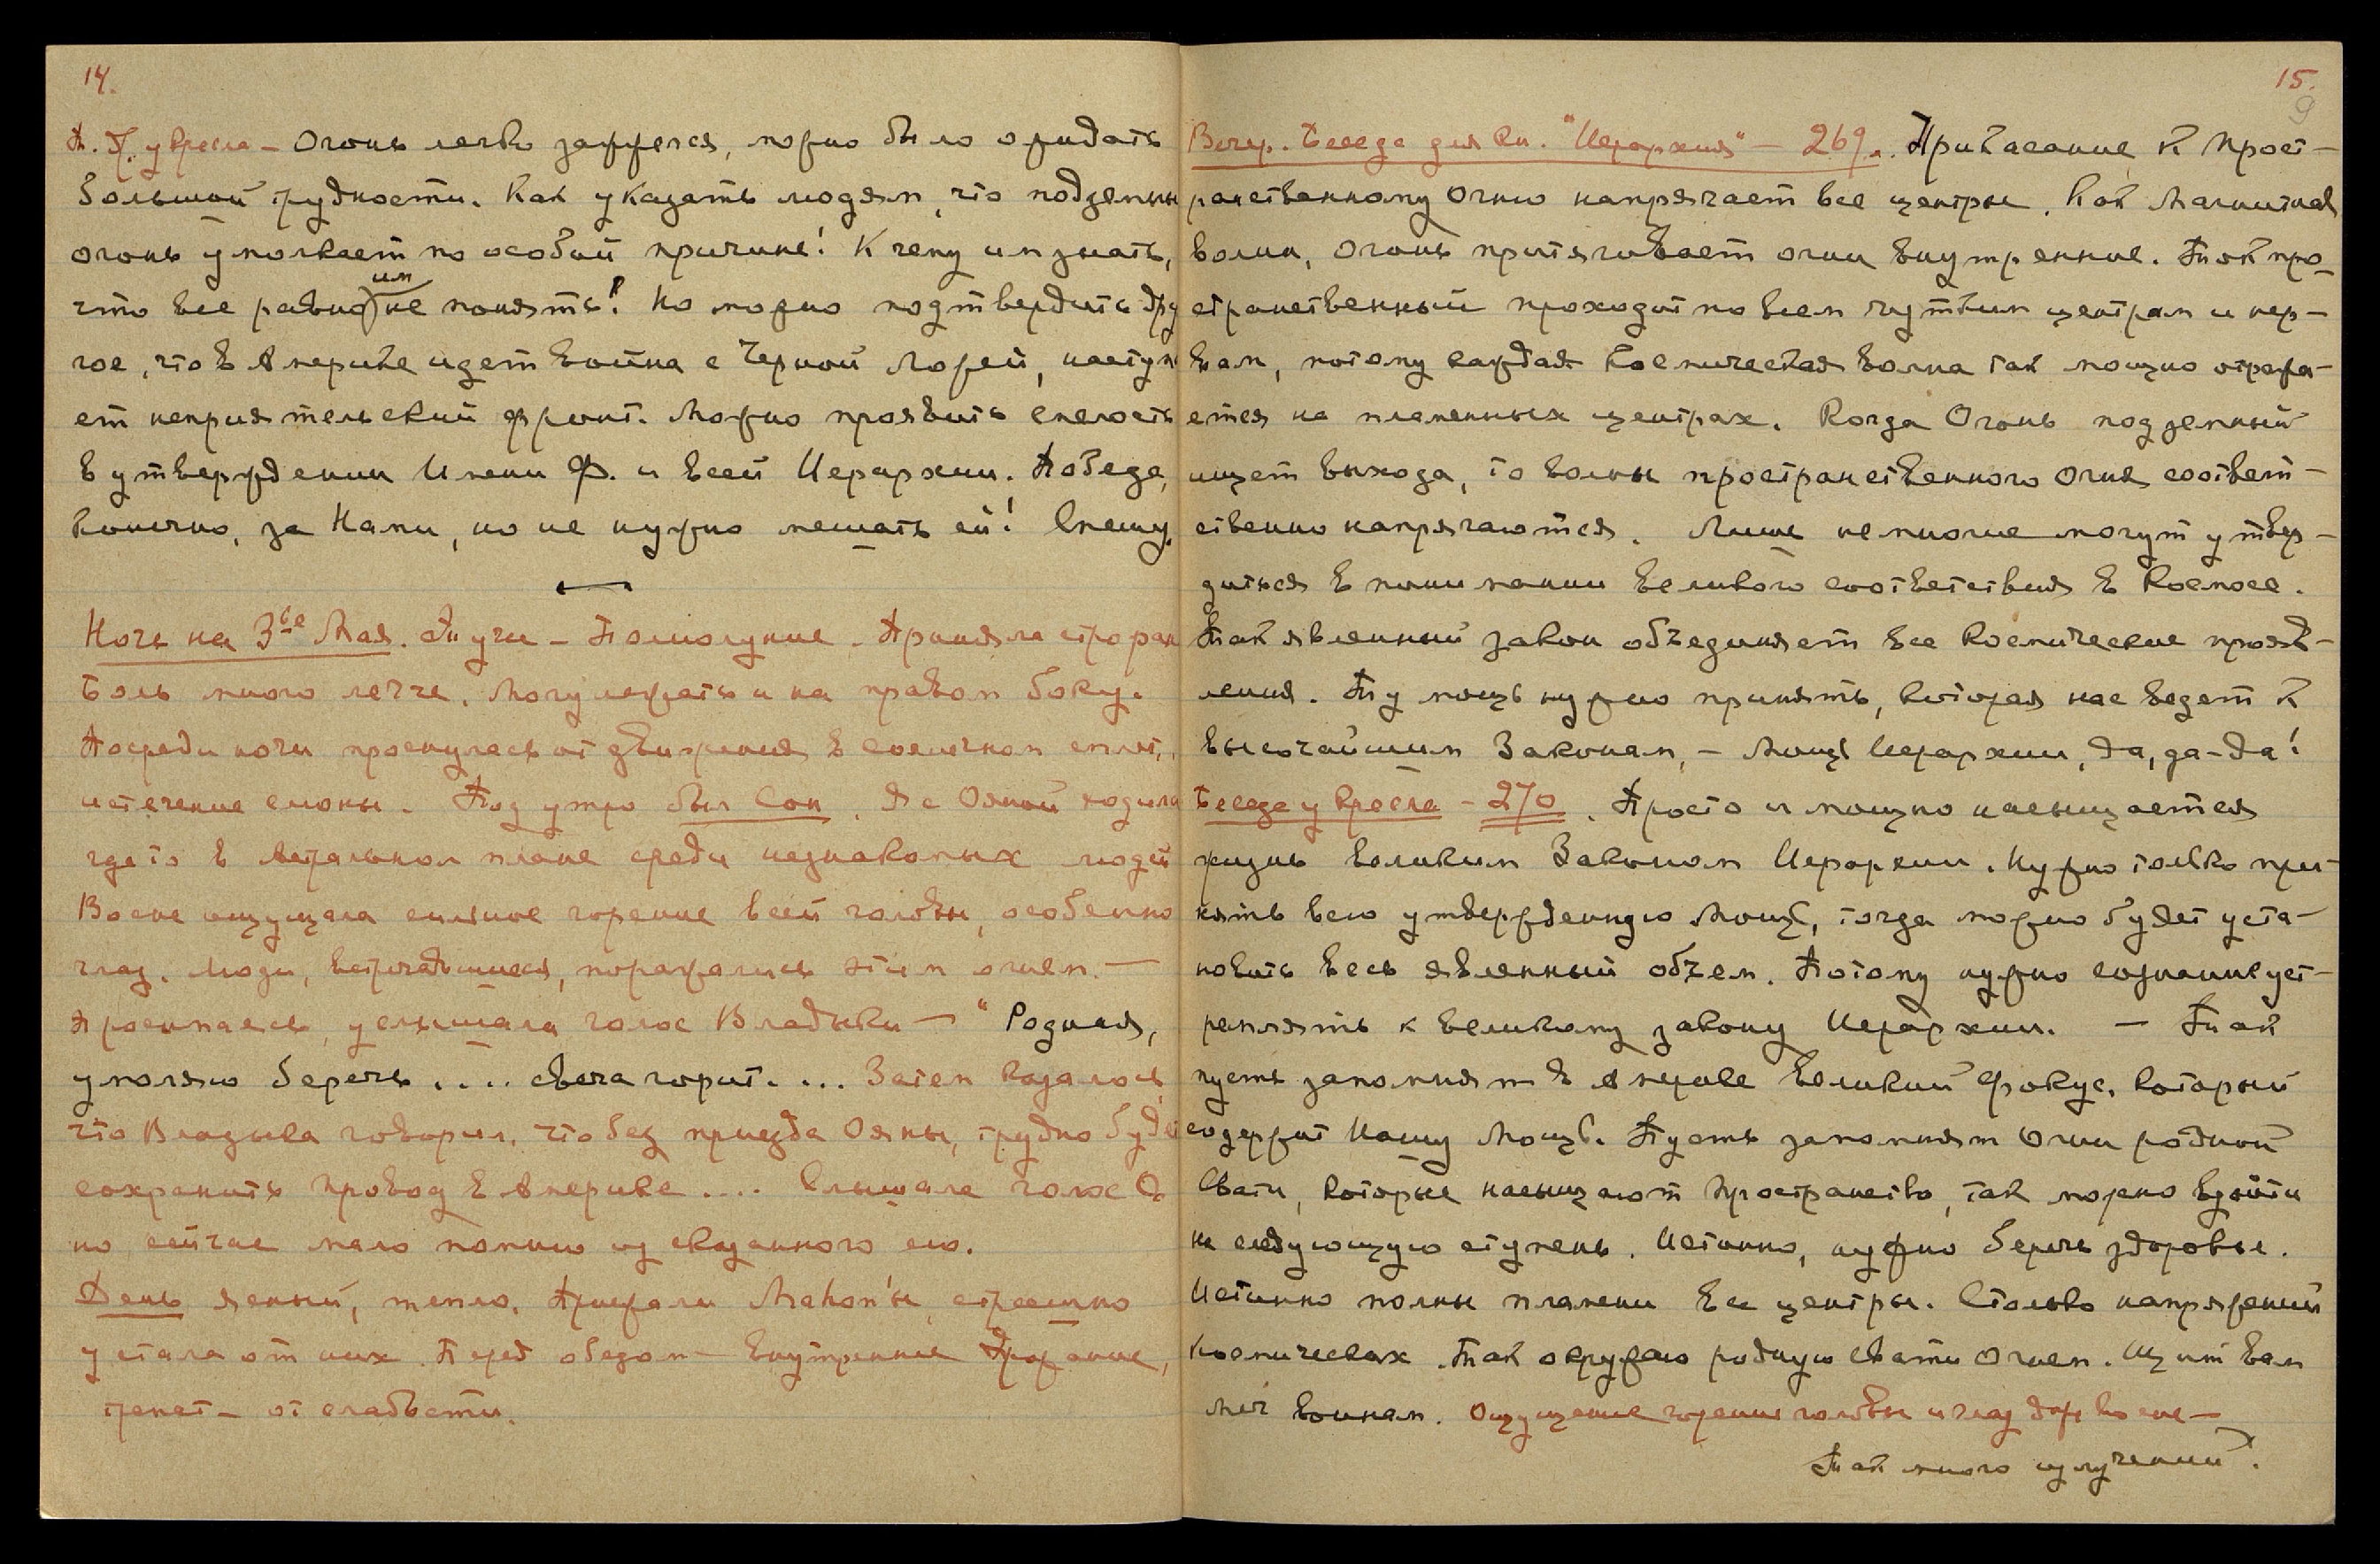 14.
А. Й. у кресла – Огонь легко зажжется, можно было ожидать
большой трудности. Как указать людям, что подземн
огонь умолкает по особой причине! К чему им знать,
что все равно им не понять! Но можно подтвердить дру
гое, что в Америке идет война с Черной Ложей, наступ
ет неприятельский фронт. Можно проявить смелость
в утверждении Имени Ф. и всей Иерархии. Победа,
конечно, за Нами, но не нужно мешать ей! Спешу.
Ночь на 3ье Мая. Тучи – Полнолуние. Приняла строфан
Боль много легче. Могу лежать и на правом боку.
Посреди ночи проснулась от движения в солнечном сплет.,
истечение слюны. Под утро был Сон. Я с Ояной ходила
где то в Астральном плане среди незнакомых людей
Во сне ощущала сильное горение всей головы, особенно
глаз. Люди, встречавшиеся, поражались этим огнем. –
Просыпаясь, услышала голос Владыки – "Родная,
умоляю беречь .... свеча горит. ... Затем казалось,
что Владыка говорил, что без приезда Ояны, трудно буде
сохранить провод в Америке .... Слышала голос О.
но сейчас мало помню из сказанного ею.
День ясный, тепло. Приезжали Mahon'ы, страшно
устала от них. Перед обедом – Внутреннее Дрожание,
трепет – от слабости.
15.
9
Вечер. Беседа для кн. "Иерархия" – 269. Прикасание к прост-
ранственному Огню напрягает все центры. Как Магнитная
волна, Огонь притягивает огни внутренние. Ток про-
странственный проходит по всем чутким центрам и нер-
вам, потому каждая Космическая волна так мощно отража-
ется на пламенных центрах. Когда Огонь подземный
ищет выхода, то волны пространственного Огня соответ-
ственно напрягаются. Лишь немногие могут утвер-
диться в понимании великого соответствия в Космосе.
Так явленный закон объединяет все космические прояв-
ления. Ту мощь нужно принять, которая нас ведет к
высочайшим Законам, – Мощь Иерархии, да, да-да!
Беседа у кресла – 270. Просто и мощно насыщается
жизнь великим Законом Иерархии. Нужно только при-
нять всю утвержденную Мощь, тогда можно будет уста-
новить весь явленный объем. Потому нужно сознание уст-
ремлять к великому закону Иерархии. – Так
пусть запомнят в Америке великий Фокус, который
содержит Нашу Мощь. Пусть запомнят Огни родной
Свати, которые насыщают Пространство, так можно взойти
на следующую ступень. Истинно, нужно беречь здоровье.
Истинно полны пламени Ее центры. Столько напряжений
космических. Так окружаю родную Свати Огнем. Щит вам
меч воинам. Ощущение горения головы и глаз даже во сне –
Так много излучений.